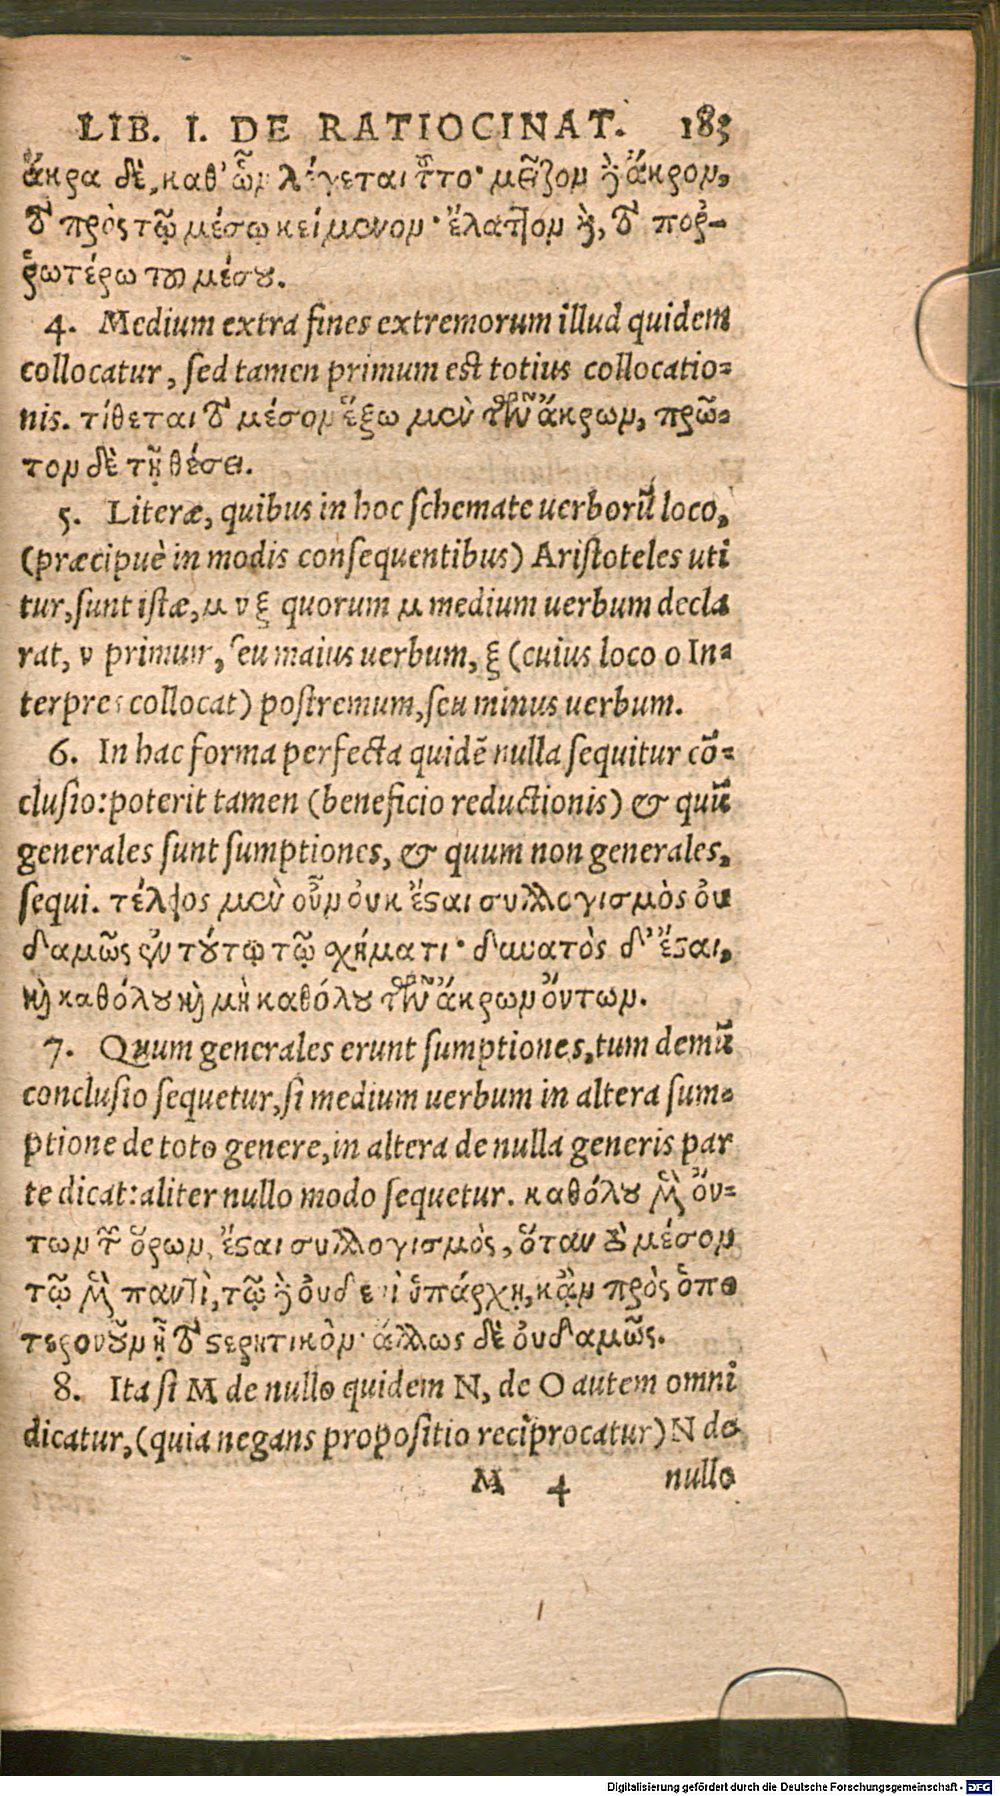 LIB. I. DE RATIOCINAT. 183
ἄκρα δὲ, καθ' ὧν λέγεται τῦτο· μεῖζον δὲ ἄκρον,
τὸ πρὸς τῷ μέσῳ κείμενον· ἔλαττον δὲ, τὸ πορ-
ῥωτέρω τοῦ μέσου.
4. Medium extra fines extremorum illud quidem
collocatur, ſed tamen primum est totius collocatio=
nis. τίθεται τὸ μέσον ἔξω μὲν τῶν ἄκρων, πρῶ=
τον δὲ τῇ θέσει.
5. Literæ, quibus in hoc ſchemate uerborũ loco,
(præcipuè in modis conſequentibus) Ariſtoteles uti
tur, ſunt iſtæ, μ ν ξ quorum μ medium uerbum decla
rat, ν primum, ſeu maius uerbum, ξ (cuius loco o In=
terpres collocat) poſtremum, ſeu minus uerbum.
6. In hac forma perfecta quidẽ nulla ſequitur cõ=
cluſio: poterit tamen (beneficio reductionis) & quũ
generales ſunt ſumptiones, & quum non generales,
ſequi. τέλειος μὲν οὖν οὐκ ἔσται συλλογισμὸς οὐ
δαμῶς ἐν τούτῳ τῷ σχήματι· δυνατὸς δ' ἔσται,
καὶ καθόλου καὶ μὴ καθόλου τῶν ἄκρων ὄντων.
7. Quum generales erunt ſumptiones, tum demũ
concluſio ſequetur, ſi medium uerbum in altera ſum=
ptione de toto genere, in altera de nulla generis par
te dicat: aliter nullo modo ſequetur. καθόλου μὲν ὄν=
των τῶν ὅρων, ἔσται συλλογισμὸς, ὅταν τὸ μέσον
τῷ μὲν παντὶ, τῷ δὲ οὐδενὶ ὑπάρχῃ, κἂν πρὸς ὁπο
τερονοῦν ᾖ τὸ στερητικὸν· ἄλλως δὲ οὐδαμῶς.
8. Ita ſi M de nullo quidem N, de O autem omni
dicatur, (quia negans propoſitio reciprocatur) N de
M 4 nullo
Digitalisierung gefördert durch die Deutsche Forschungsgemeinschaft - DFG